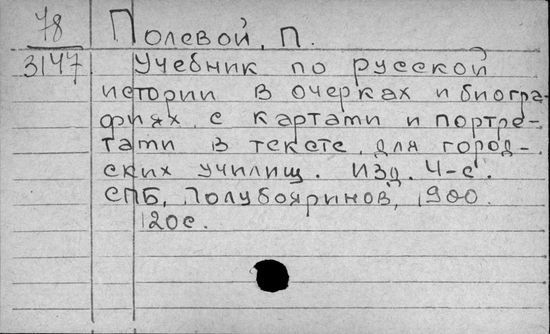 78
3147
Полевой, П.
Учебник по русской
истории в очерках и биогра-
фиях, с картами и портре-
тами в тексте, для город-
ских училищ. Изд. 4-е.
СПБ, Полубояринов, 1900.
120с.